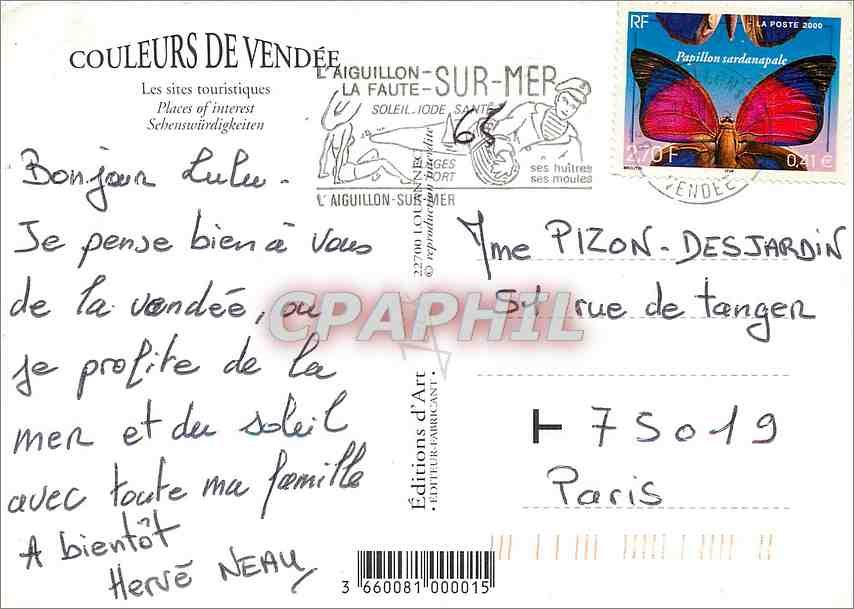 COULEURS DE VENDÉE
Les sites touristiques
Places of interest
Sehenswürdigkeiten
L'AIGUILLON-
LA FAUTE-SUR-MER
SOLEIL-IODE SANTÉ
ses huîtres
ses moules
L'AIGUILLON-SUR-MER
63
RF
LA POSTE 2000
Papillon sardanapale
2,70 F
0,41 €
VENDÉE
Bonjour Lulu.
Je pense bien à vous
de la vendée, ou
je profite de la
mer et du soleil
avec toute ma famille
A bientôt
Hervé NEAU
22700 LOUANNEC
© reproduction interdite
Editions d'Art
• ÉDITEUR-FABRICANT •
Mme PIZON-DESJARDIN
51 rue de tanger
75019
Paris
CPAPHIL
3 660081 000015